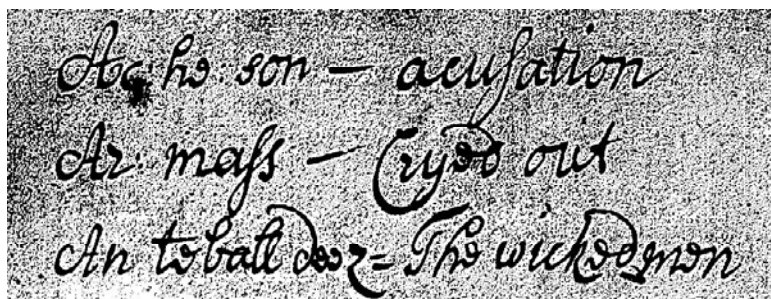 Ac he son — acuſation
Ar maſs — Cryed out
An teball deez = The wicked men